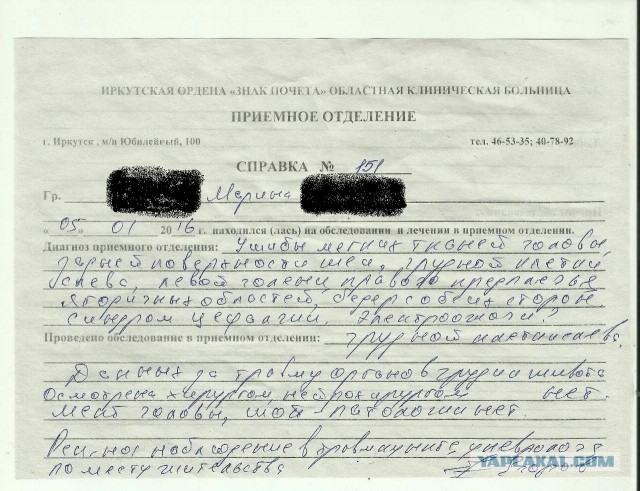 ИРКУТСКАЯ ОРДЕНА «ЗНАК ПОЧЕТА» ОБЛАСТНАЯ КЛИНИЧЕСКАЯ БОЛЬНИЦА
ПРИЕМНОЕ ОТДЕЛЕНИЕ
г. Иркутск , м/н Юбилейный, 100 тел. 46-53-35; 40-78-92
СПРАВКА № 151
Гр. Марина
« 05 » 01 2016 г. находился (лась) на обследовании и лечении в приемном отделении.
Диагноз приемного отделения: Ушибы мягких тканей головы,
задней поверхности шеи, грудной клетки
слева, левой голени правого предплечья
ягодичных областей, бедер с обеих сторон
синдром цефалгии. Электроожоги?
Проведено обследование в приемном отделении: грудной клетки слева.
Данных за травму органов груди и живота
осмотрена хирургом, нейрохирургом нет.
мскт головы, шеи - патологии нет.
наблюдение в травмпункте, у невролога
по месту жительства
YAPLAKAL.COM